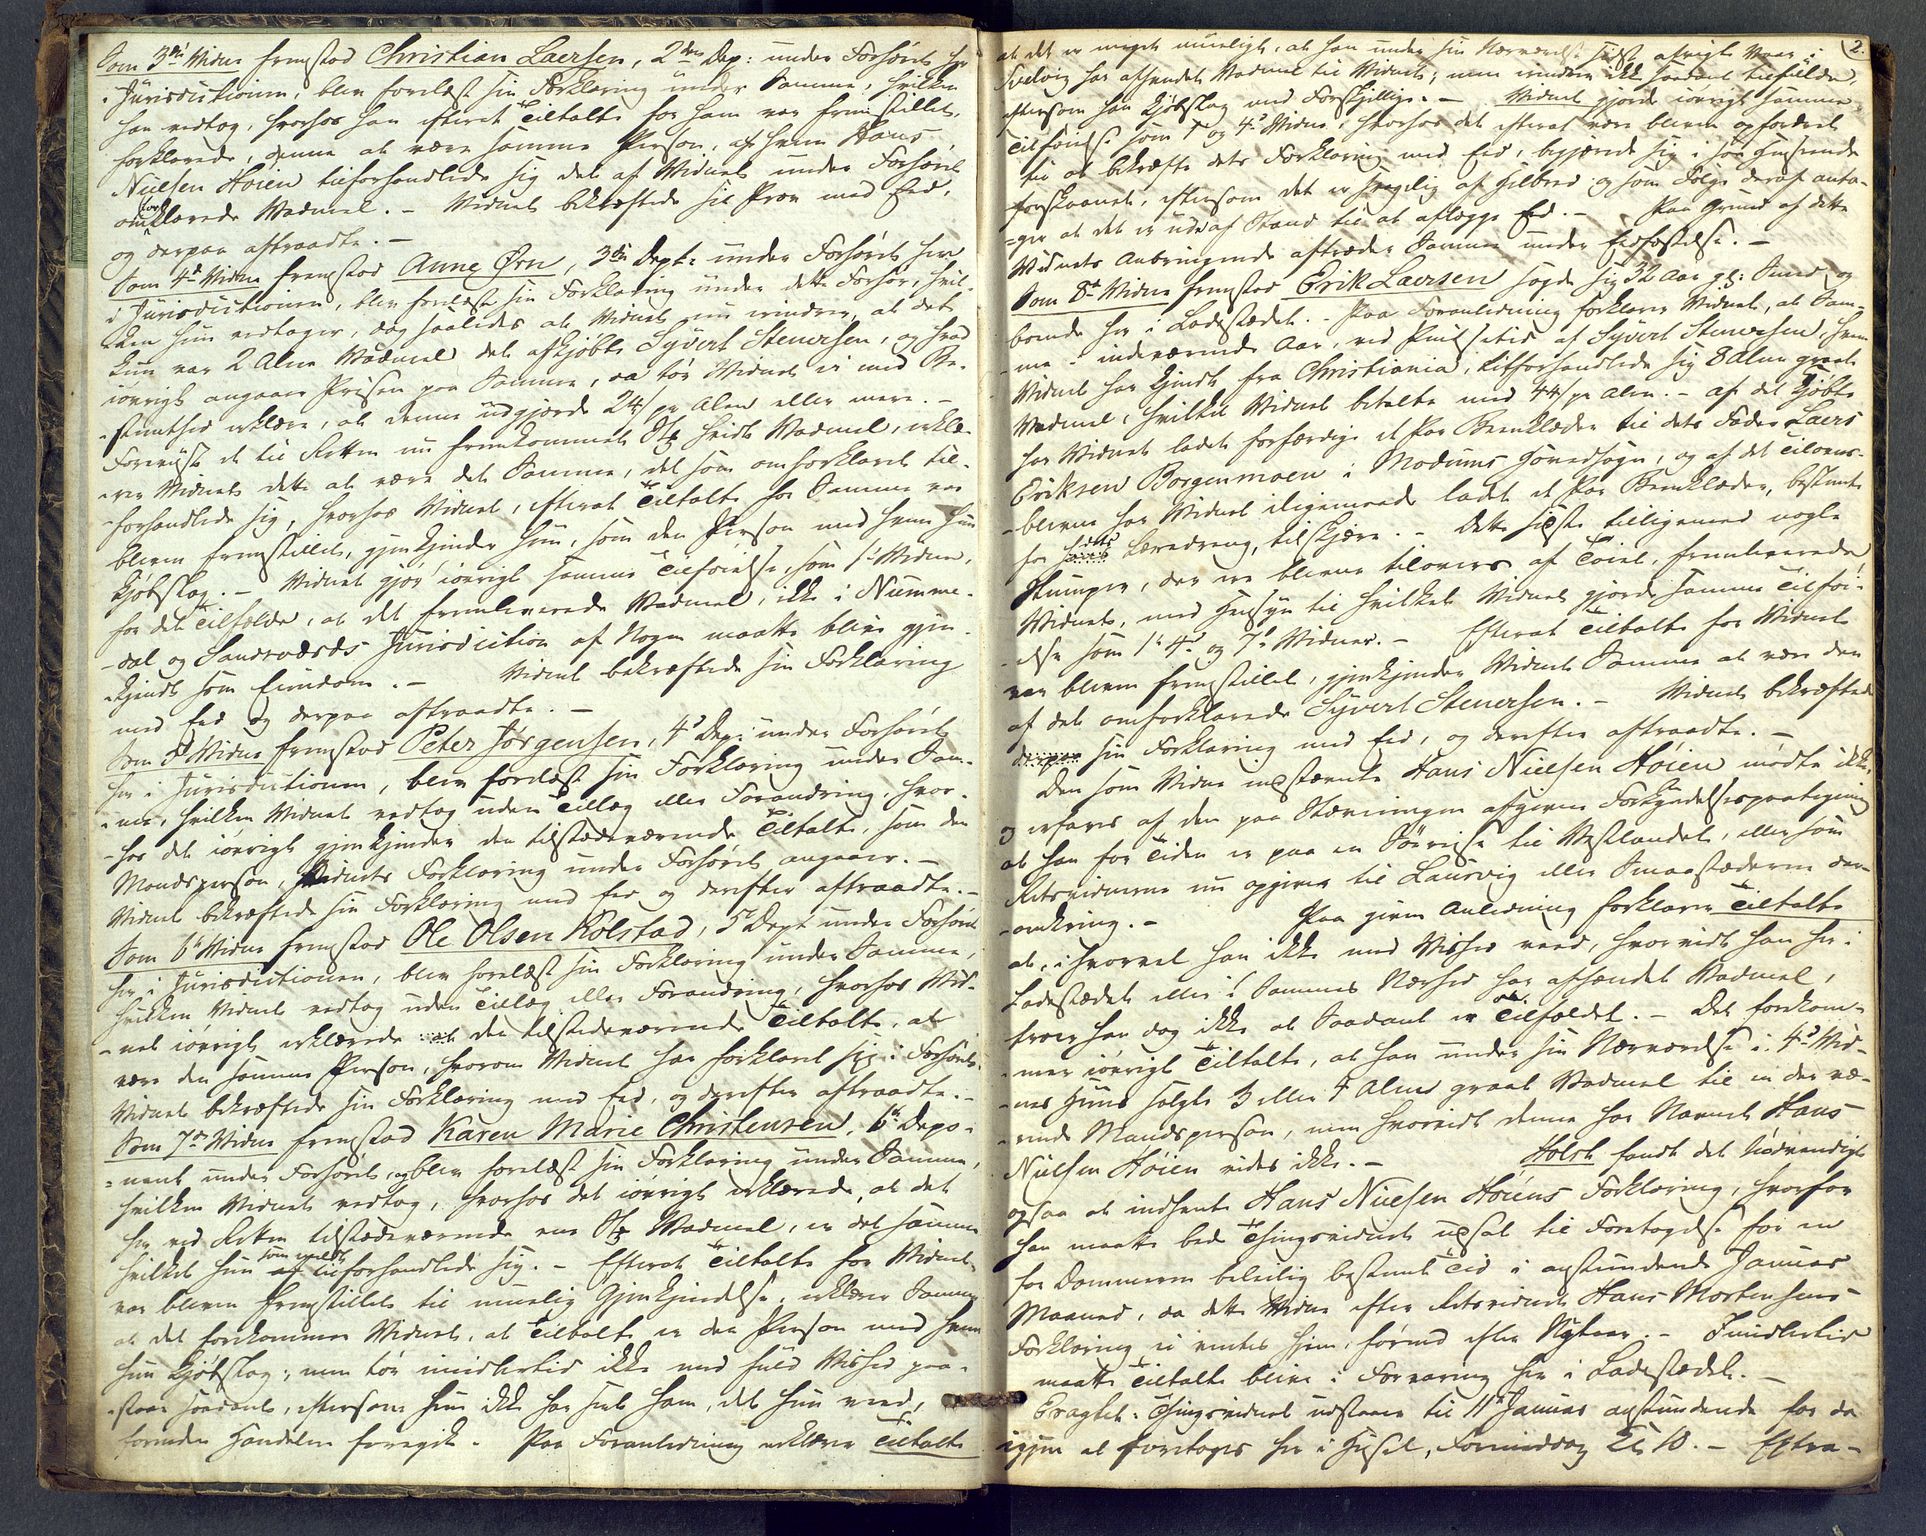 Som 3die Vidne fremstod Christian Laersen, 2den Dep: under Forhøret her
i Jurisdictionen, blev forelæst sin Forklaring under Samme, hvilken
han vedtog, hvorhos han efterat Tiltalte for ham var fremstillet,
forklarede, denne at være samme Person, af hvem Hans
Nielsen Høien tilforhandlede sig det af Vidnet under Forhøret
omforklarede Vadmel. – Vidnet bekræftede sit Prov med Eed,
og derpaa aftraadte. –
Som 4de Vidne fremstod Anne Ørn, 3die Dept: under Forhøret her
i Jurisdictionen, blev forelæst sin Forklaring under dette Forhør, hvil-
-ken hun vedtager, dog saaledes at Vidnet nu erindrer, at det
kun var 2 Alen Vadmel det afkjøbte Syvert Stenersen, og hvad
iøvrigt angaaer Prisen paa Samme, da tør Vidnet ei med Be-
-stemthed erklære, at denne udgjorde 24 s pr Alen eller mere. –
Foreviist et til Retten nu fremkommet Stk hvidt Vadmel, erklæ-
-rer Vidnet dette at være det Samme, det som omforklaret til-
-forhandlede sig, hvorhos Vidnet, efterat Tiltalte for Samme var
bleven fremstillet, gjenkjender ham, som den Person med hvem hun
kjøbslog. – Vidnet gjør iøvrigt samme Tilføielse, som 1ste Vidne,
for det Tilfælde, at det fremleverede Vadmel, ikke i Numme-
-dal og Sandsværds Jurisdiction af Nogen maatte blive gjen-
-kjendt som Eiendom. – Vidnet bekræftede sin Forklaring
med Eed og derpaa aftraadte. –
Som 5te Vidne fremstod Peter Jørgensen, 4de Dep: under Forhøret
her i Jurisdictionen, blev forelæst sin Forklaring under Sam-
-me, hvilken Vidnet vedtog uden Tillæg eller Forandring, hvor-
-hos det iøvrigt gjenkjender den tilstedeværende Tiltalte, som den
Mandsperson, Vidnets Forklaring under Forhøret angaaer. –
Vidnet bekræftede sin Forklaring med Eed og derefter aftraadte. –
Som 6te Vidne fremstod Ole Olsen Kolstad, 5te Dept under Forhøret
her i Jurisdictionen, blev forelæst sin Forklaring under Samme,
hvilken Vidnet vedtog uden Tillæg eller Forandring, hvorhos Vid-
-net iøvrigt erklærede den tilstedeværende Tiltalte, at
være den samme Person, hvorom Vidnet har forklaret sig i Forhøret.
Vidnet bekræftede sin Forklaring med Eed, og derefter aftraadte. –
Som 7de Vidne fremstod Karen Marie Christensen, 6te Depo-
-nent under Forhøret, og blev forelæst sin Forklaring under Samme,
hvilken Vidnet vedtog, hvorhos det iøvrigt erklærede, at det
her ved Retten tilstedeværende ene Stk Vadmel, er det samme
hvilket hun som meldt tilforhandlede sig. – Efterat Tiltalte for Vidnet
var bleven fremstillet til muelig Gjenkjendelse, erklærer Samme
at det forekommer Vidnet, at Tiltalte er den Person med hvem
hun kjøbslog; men tør imidlertid ikke med fuld Vished paa-
-staae saadant, eftersom hun ikke har seet ham, det hun veed,
forinden Handelen foregik. – Paa Foranledning erklærer Tiltalte
2.
at det er meget mueligt, at han under sin Nærværelse sidst afvigte Vaar i
Svelvig har afhændet Vadmel til Vidnet; men erindrer ikke saadant Tilfælde,
eftersom han kjøbslog med Forskjellige. – Vidnet gjorde iøvrigt samme
Tilføielse som 1ste og 4de Vidne, hvorhos det efterat være bleven opfordret
til at bekræfte dets Forklaring med Eed, begjærede sig i saa Henseende
forskaanet, eftersom det er svagelig af Helbred og som Følge deraf anta-
-ger at det er ude af Stand til at aflægge Eed. – Paa Grund af dette
Vidnets Anbringende aftræder Samme under Eedfæstelse. –
Som 8de Vidne fremstod Erik Laersen sagde sig 32 Aar gl: Smed og
boende her i Ladestædet. – Paa Foranledning forklarer Vidnet, at Sam-
-me i indeværende Aar, ved Pintsetid af Syvert Stenersen, hvem
Vidnet har kjendt fra Christiania, tilforhandlede sig 8 Alen graat
Vadmel, hvilket Vidnet betalte med 44 s pr Alen. – Af det kjøbte
har Vidnet ladet forfærdige et Par Beenklæder til dets Fader Laers
Eriksen Borgenmoen i Modums Hovedsogn, og af det Tilovers-
-blevne har Vidnet iligemaade ladet et Par Beenklæder, bestemt
for dets Læredreng, tilskjære. – Dette sidste tilligemed nogle
Stumper, der ere blevne tilovers af Tøiet, fremleverede
Vidnet, med Hensyn til hvilket Vidnet gjorde samme Tilføi-
-else som 1ste 4de og 7de Vidner. – Efterat Tiltalte for Vidnet
var bleven fremstillet, gjenkjender Vidnet Samme at være den
af det omforklarede Syvert Stenersen. – Vidnet bekræftede
derpaa sin Forklaring med Eed, og derefter aftraadte. –
Den som Vidne indstævnte Hans Nielsen Høien mødte ikke,
og erfares af den paa Stævningen afgivne Forkyndelsespaategning
at han for Tiden er paa en Søereise til Vestlandet, eller som
Retsvidnerne nu opgiver til Laurvig eller Smaastæderne der-
-omkring. – Paa given Anledning forklarer Tiltalte
at, ihvorvel han ikke med Vished veed, hvorvidt han her i
Ladestædet eller i Sammes Nærhed har afhændet Vadmel,
troer han dog ikke at Saadant er Tilfældet. – Det forekom-
-mer iøvrigt Tiltalte, at han under sin Nærværelse i 4de Vid-
-nes Huus solgte 3 eller 4 Alen graat Vadmel til en der væ-
-rende Mandsperson, men hvorvidt denne har Navnet Hans
Nielsen Høien vides ikke. – Holst fandt det nødvendigt
ogsaa at indhente Hans Nielsen Høiens Forklaring, hvorfor
han maatte bede Thingsvidnet udsat til Foretagelse for en
for Dommeren beleilig bestemt Tid i anstundende Januar
Maaned, da dette Vidne efter Retsvidnet Hans Mortensens
Forklaring ei ventes hjem, førend efter Nytaar. – Imidlertid
maatte Tiltalte blive i Forvaring her i Ladestædet. –
Eragtet: Thingsvidnet udstaaer til 11te Januar anstundende for da
igjen at foretages her i Huset, Formiddag Kl. 10. – Extra-